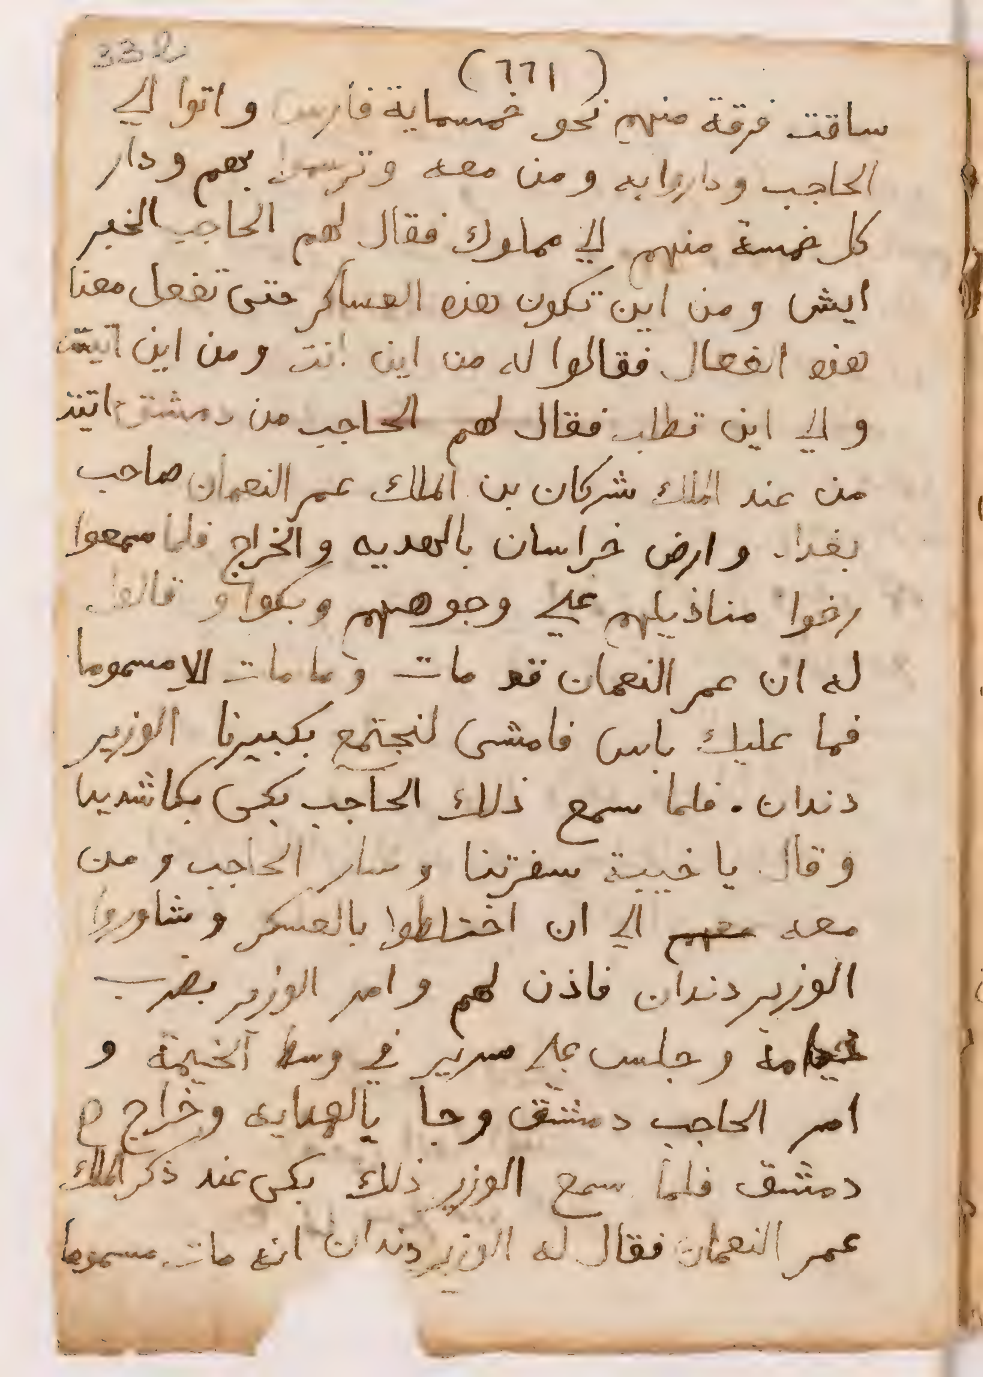 332
(٦٦١)
ساقت فرقة منهم نحو خمسماية فارس واتوا الي
الحاجب وداروا به ومن معه وترسموا بهم ودار
كل خمسة منهم الي مملوك فقال لهم الحاجب الخبر
ايش ومن اين تكون هذه العساكر حتى تفعل معنا
هذه الفعال فقالوا له من اين انت ومن اين اتيت
والي اين تطلب فقال لهم الحاجب من دمشق اتيت
من عند الملك شركان بن الملك عمر النعمان صاحب
بغداد وارض خراسان بالهديه والخراج فلما سمعوا
رخوا مناذيلهم علي وجوههم وبكوا وقالوا
له ان عمر النعمان قد مات وما مات الا مسموما
فما عليك باس فامشى لنجتمع بكبيرنا الوزير
دندان. فلما سمع ذلك الحاجب بكى بكا شديدا
وقال يا خيبة سفرتنا وسار الحاجب ومن
معه معهم الي ان اختلطوا بالعسكر وشاوروا
الوزير دندان فاذن لهم وامر الوزير بضرب
وجلس علي سرير في وسط الخيمة و
امر الحاجب دمشق وجا بالهدايه وخراج
دمشق فلما سمع الوزير ذلك بكى عند ذكر الملك
عمر النعمان فقال له الوزير دندان انه مات مسموما